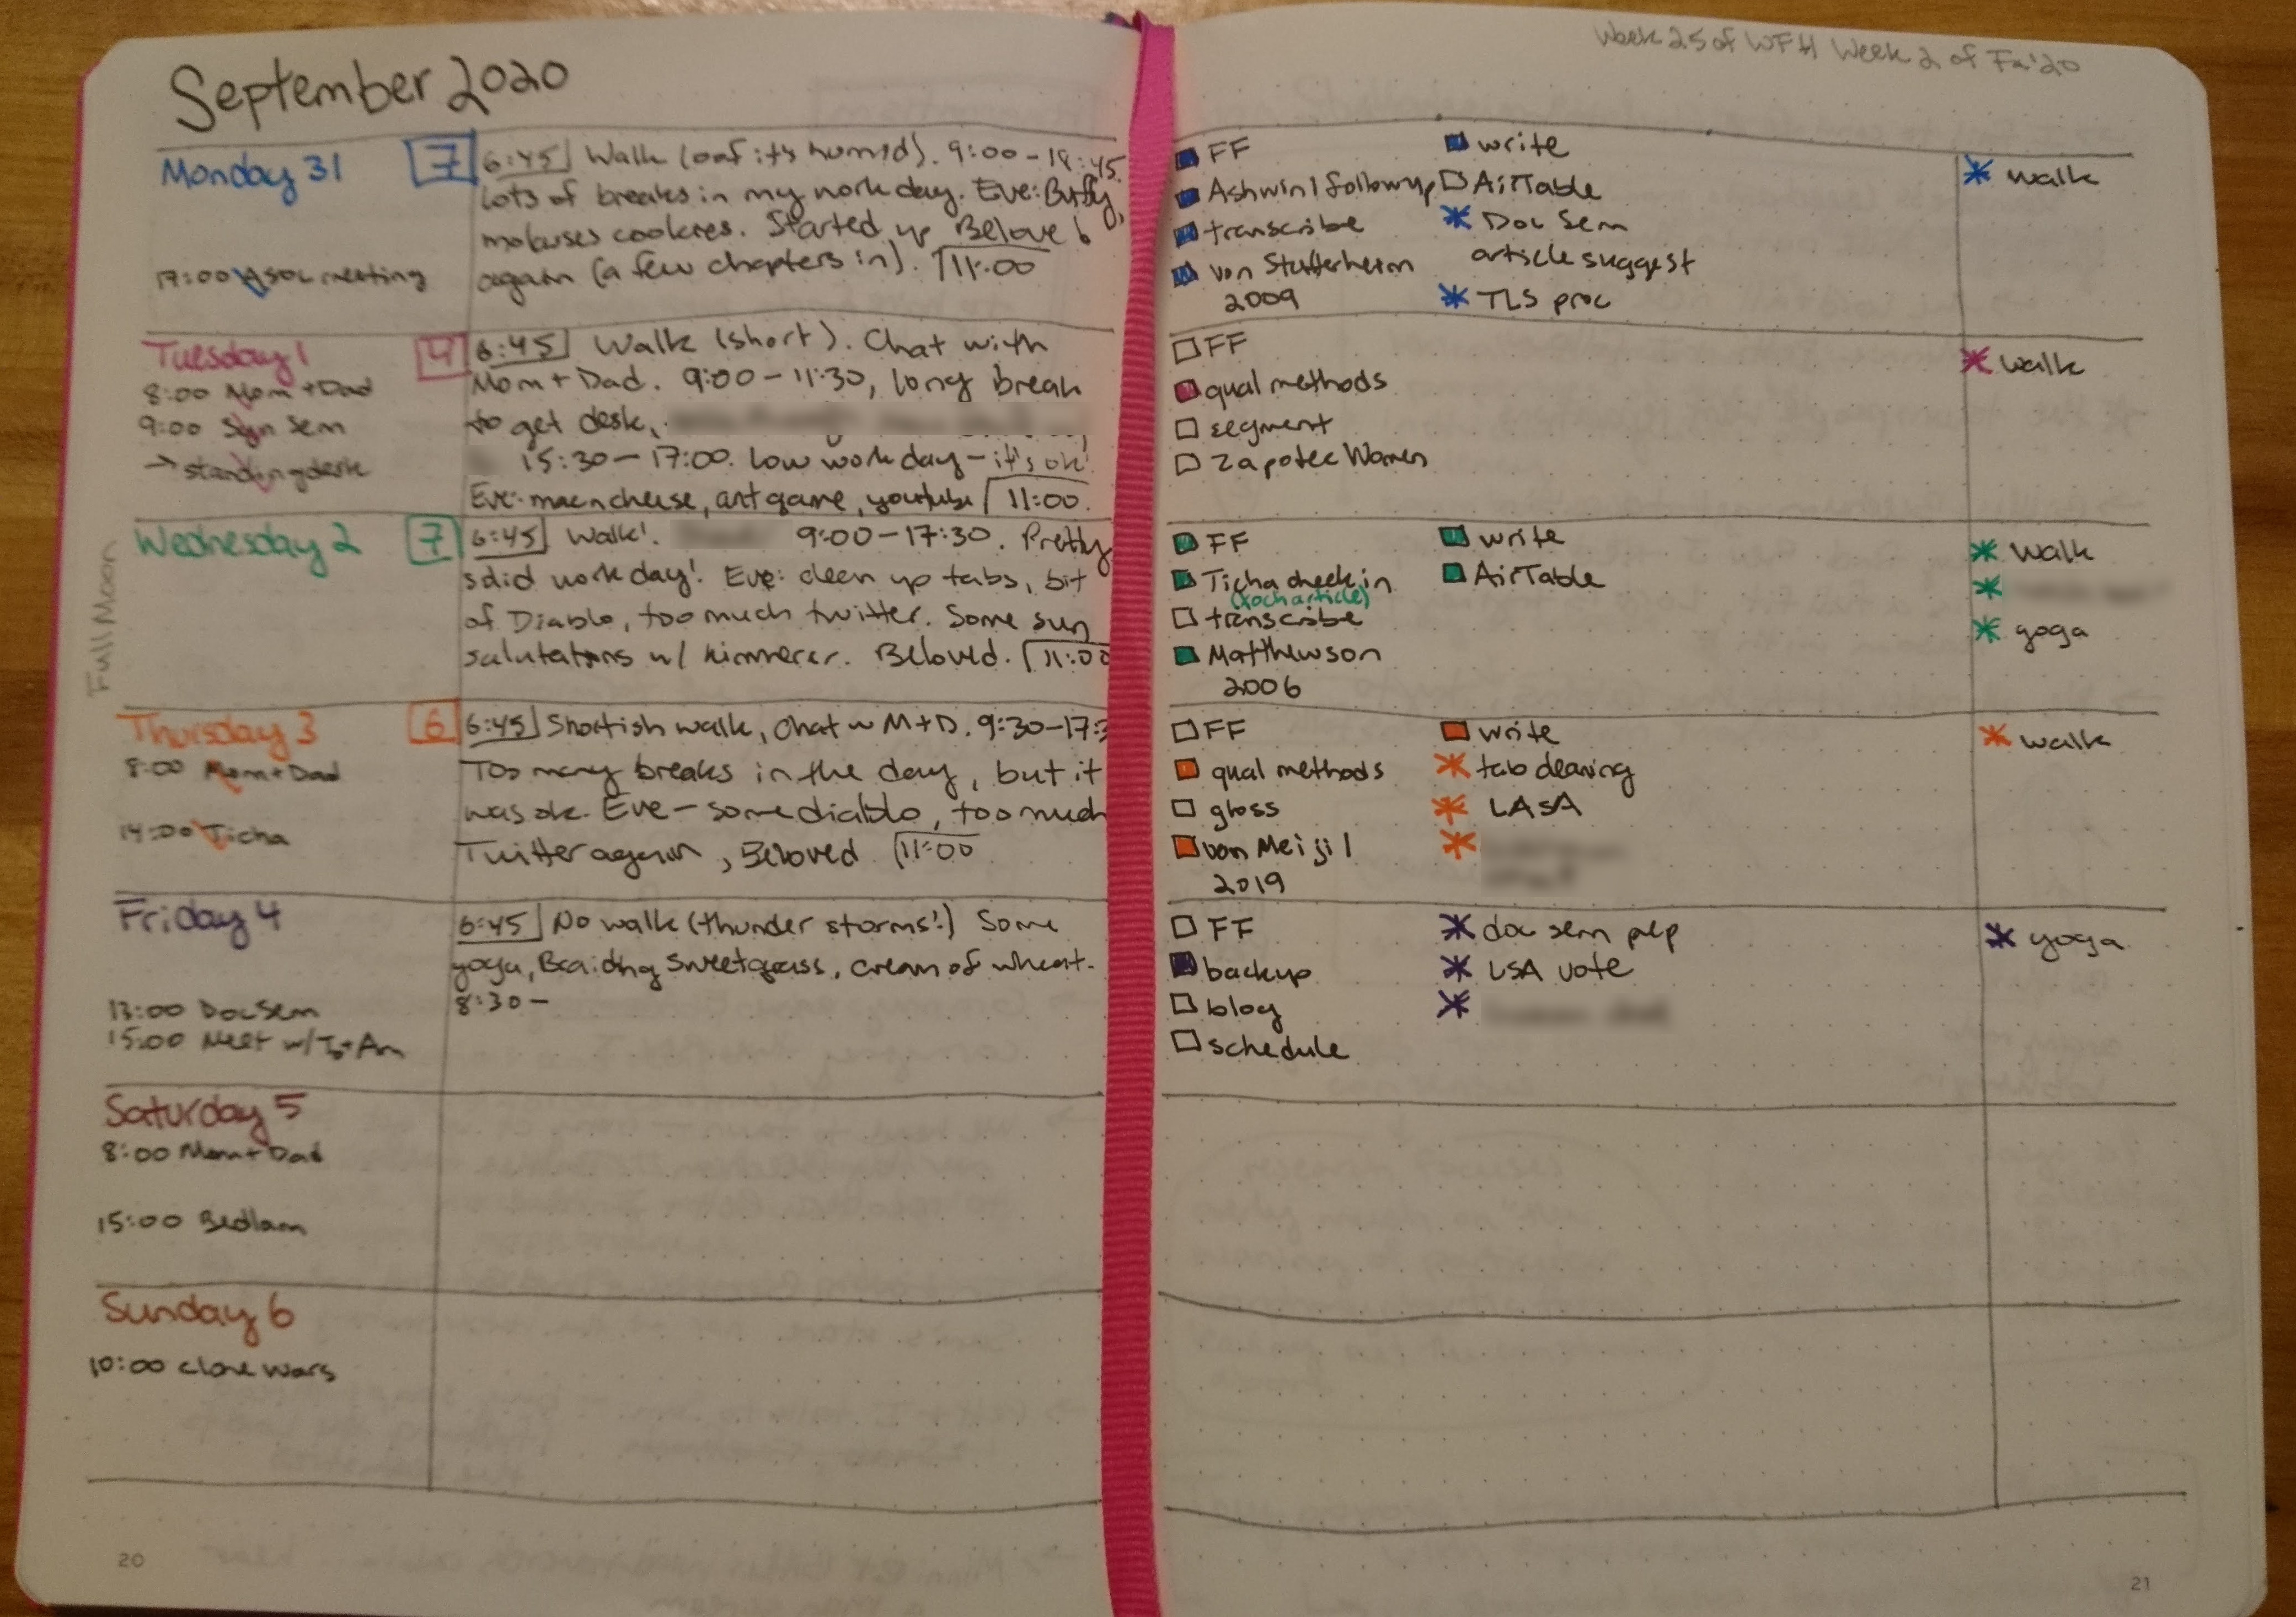 September 2020
Monday 31
17:00 Asoc meeting
7
6:45 Walk (oof it's humid). 9:00-18:45.
lots of breaks in my work day. Eve: Buffy,
cookies. Started up Belove
again (a few chapters in). 11:00
Tuesday 1
8:00 Mom + Dad
9:00 Syn Sem
→ standing desk
4
6:45 Walk (short). Chat with
Mom + Dad. 9:00-11:30, long break
to get desk,
15:30-17:00. Low work day - it's ok!
Eve: mac n cheese, art game, youtube 11:00
Full Moon
Wednesday 2
7
6:45 Walk! 9:00-17:30. Pretty
solid work day! Eve: clean up tabs, bit
of Diablo, too much twitter. Some sun
salutations w/ Kimmerer. Beloved. 11:00
Thursday 3
8:00 Mom + Dad
14:00 Ticha
6
6:45 Shortish walk, chat w M+D. 9:30-17:3
Too many breaks in the day, but it
was ok. Eve - some diablo, too much
Twitter again, Beloved 11:00
Friday 4
13:00 Doc Sem
15:00 Meet w/
6:45 No walk (thunder storms!) Some
yoga, Braiding Sweetgrass, cream of wheat.
8:30-
Saturday 5
8:00 Mom + Dad
15:00 Bedlam
Sunday 6
10:00 Clone Wars
20
Week 25 of WFH Week 2 of Fa'20
FF
Ashwini followup
transcribe
von Stutterheim
2009
write
AirTable
Doc Sem
article suggest
TLS proc
walk
FF
qual methods
segment
Zapotec Women
walk
FF
Ticha check in
(xoch article)
transcribe
Matthewson
2006
write
AirTable
walk
yoga
FF
qual methods
gloss
von Meijil
2019
write
tab clearing
LASA
walk
FF
backup
blog
schedule
doc sem prep
LSA vote
yoga
21